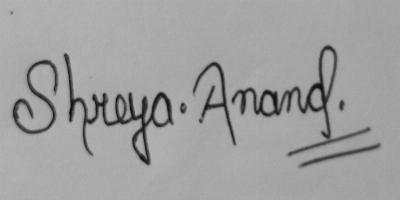 Shreya. Anand.